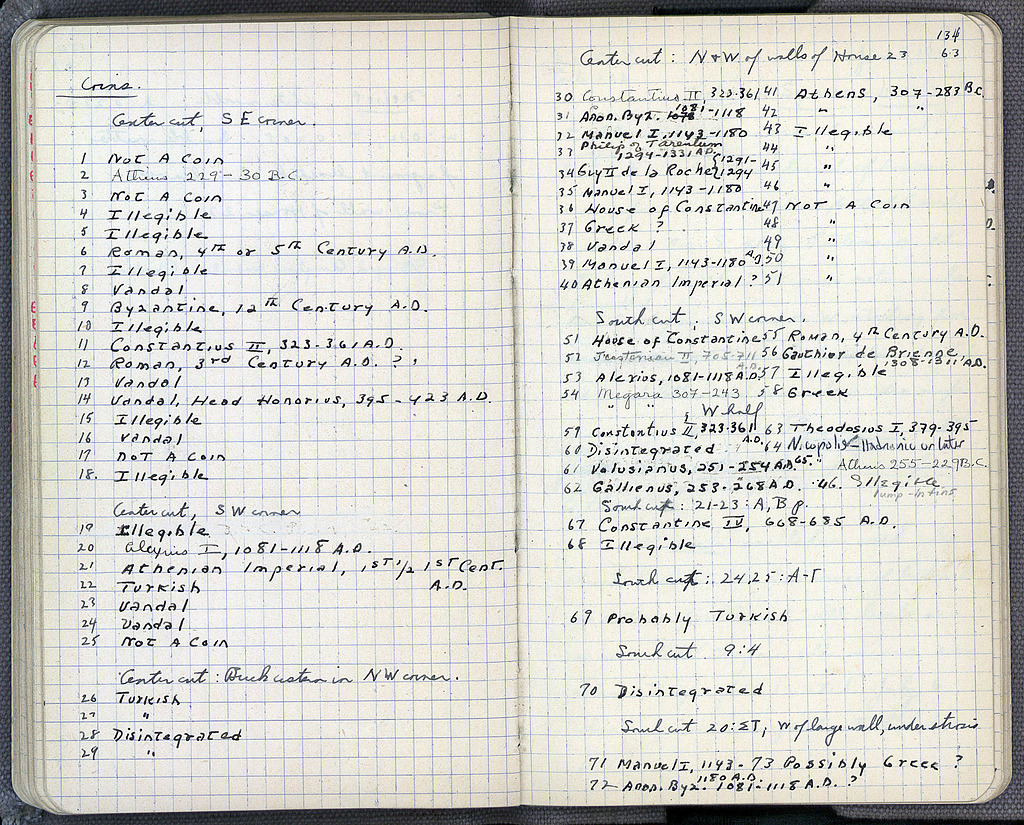 Coins.
Center cut, SE corner.
1 Not A Coin
2 Athens 229-30 B.C.
3 Not A Coin
4 Illegible
5 Illegible
6 Roman, 4th or 5th Century A.D.
7 Illegible
8 Vandal
9 Byzantine, 12th Century A.D.
10 Illegible
11 Constantius II, 323-361 A.D.
12 Roman, 3rd Century A.D. ?
13 Vandal
14 Vandal, Head Honorius, 395-423 A.D.
15 Illegible
16 Vandal
17 Not A Coin
18. Illegible
Center cut, SW corner
19 Illegible
20 Alexius I, 1081-1118 A.D.
21 Athenian Imperial, 1st 1/2 1st Cent.
22 Turkish A.D.
23 Vandal
24 Vandal
25 Not A Coin
Center cut: Brick cistern in NW corner.
26 Turkish
27 "
28 Disintegrated
29 "
134
63
Center cut: N & W of walls of House 23
30 Constantius II, 323-361
31 Anon. Byz. 1081-1118
32 Manuel I, 1143-1180
33 Philip of Tarentum 1294-1331 A.D.
34 Guy II de la Roche 1291-1294
35 Manuel I, 1143-1180
36 House of Constantine
37 Greek ?
38 Vandal
39 Manuel I, 1143-1180 A.D.
40 Athenian Imperial ?
41 Athens, 307-283 B.C.
42 "
43 Illegible
44 "
45 "
46 "
47 Not A Coin
48 "
49 "
50 "
51 "
South cut, SW corner.
51 House of Constantine
52 II, 705-711 A.D.
53 Alexius, 1081-1118 A.D.
54 Megara 307-243
55 Roman, 4th Century A.D.
56 Gauthier de Brienne, 1308-1311 A.D.
57 Illegible
58 Greek
" " ; W half
59 Constantius II, 323-361 A.D.
60 Disintegrated
61 Volusianus, 251-254 A.D.
62 Gallienus, 253-268 A.D.
63 Theodosius I, 379-395
64 Nicopolis - Hadrianic or later
65. " Athens 255-229 B.C.
46. Illegible
South cut: 21-23: A, B
67 Constantine IV, 668-685 A.D.
68 Illegible
South cut: 24,25: A-T
69 Probably Turkish
South cut 9:4
70 Disintegrated
South cut 20: ΣT, W of large wall, under strosis
71 Manuel I, 1143-1180 A.D.
72 Anon. Byz. 1081-1118 A.D. ?
73 Possibly Greek ?